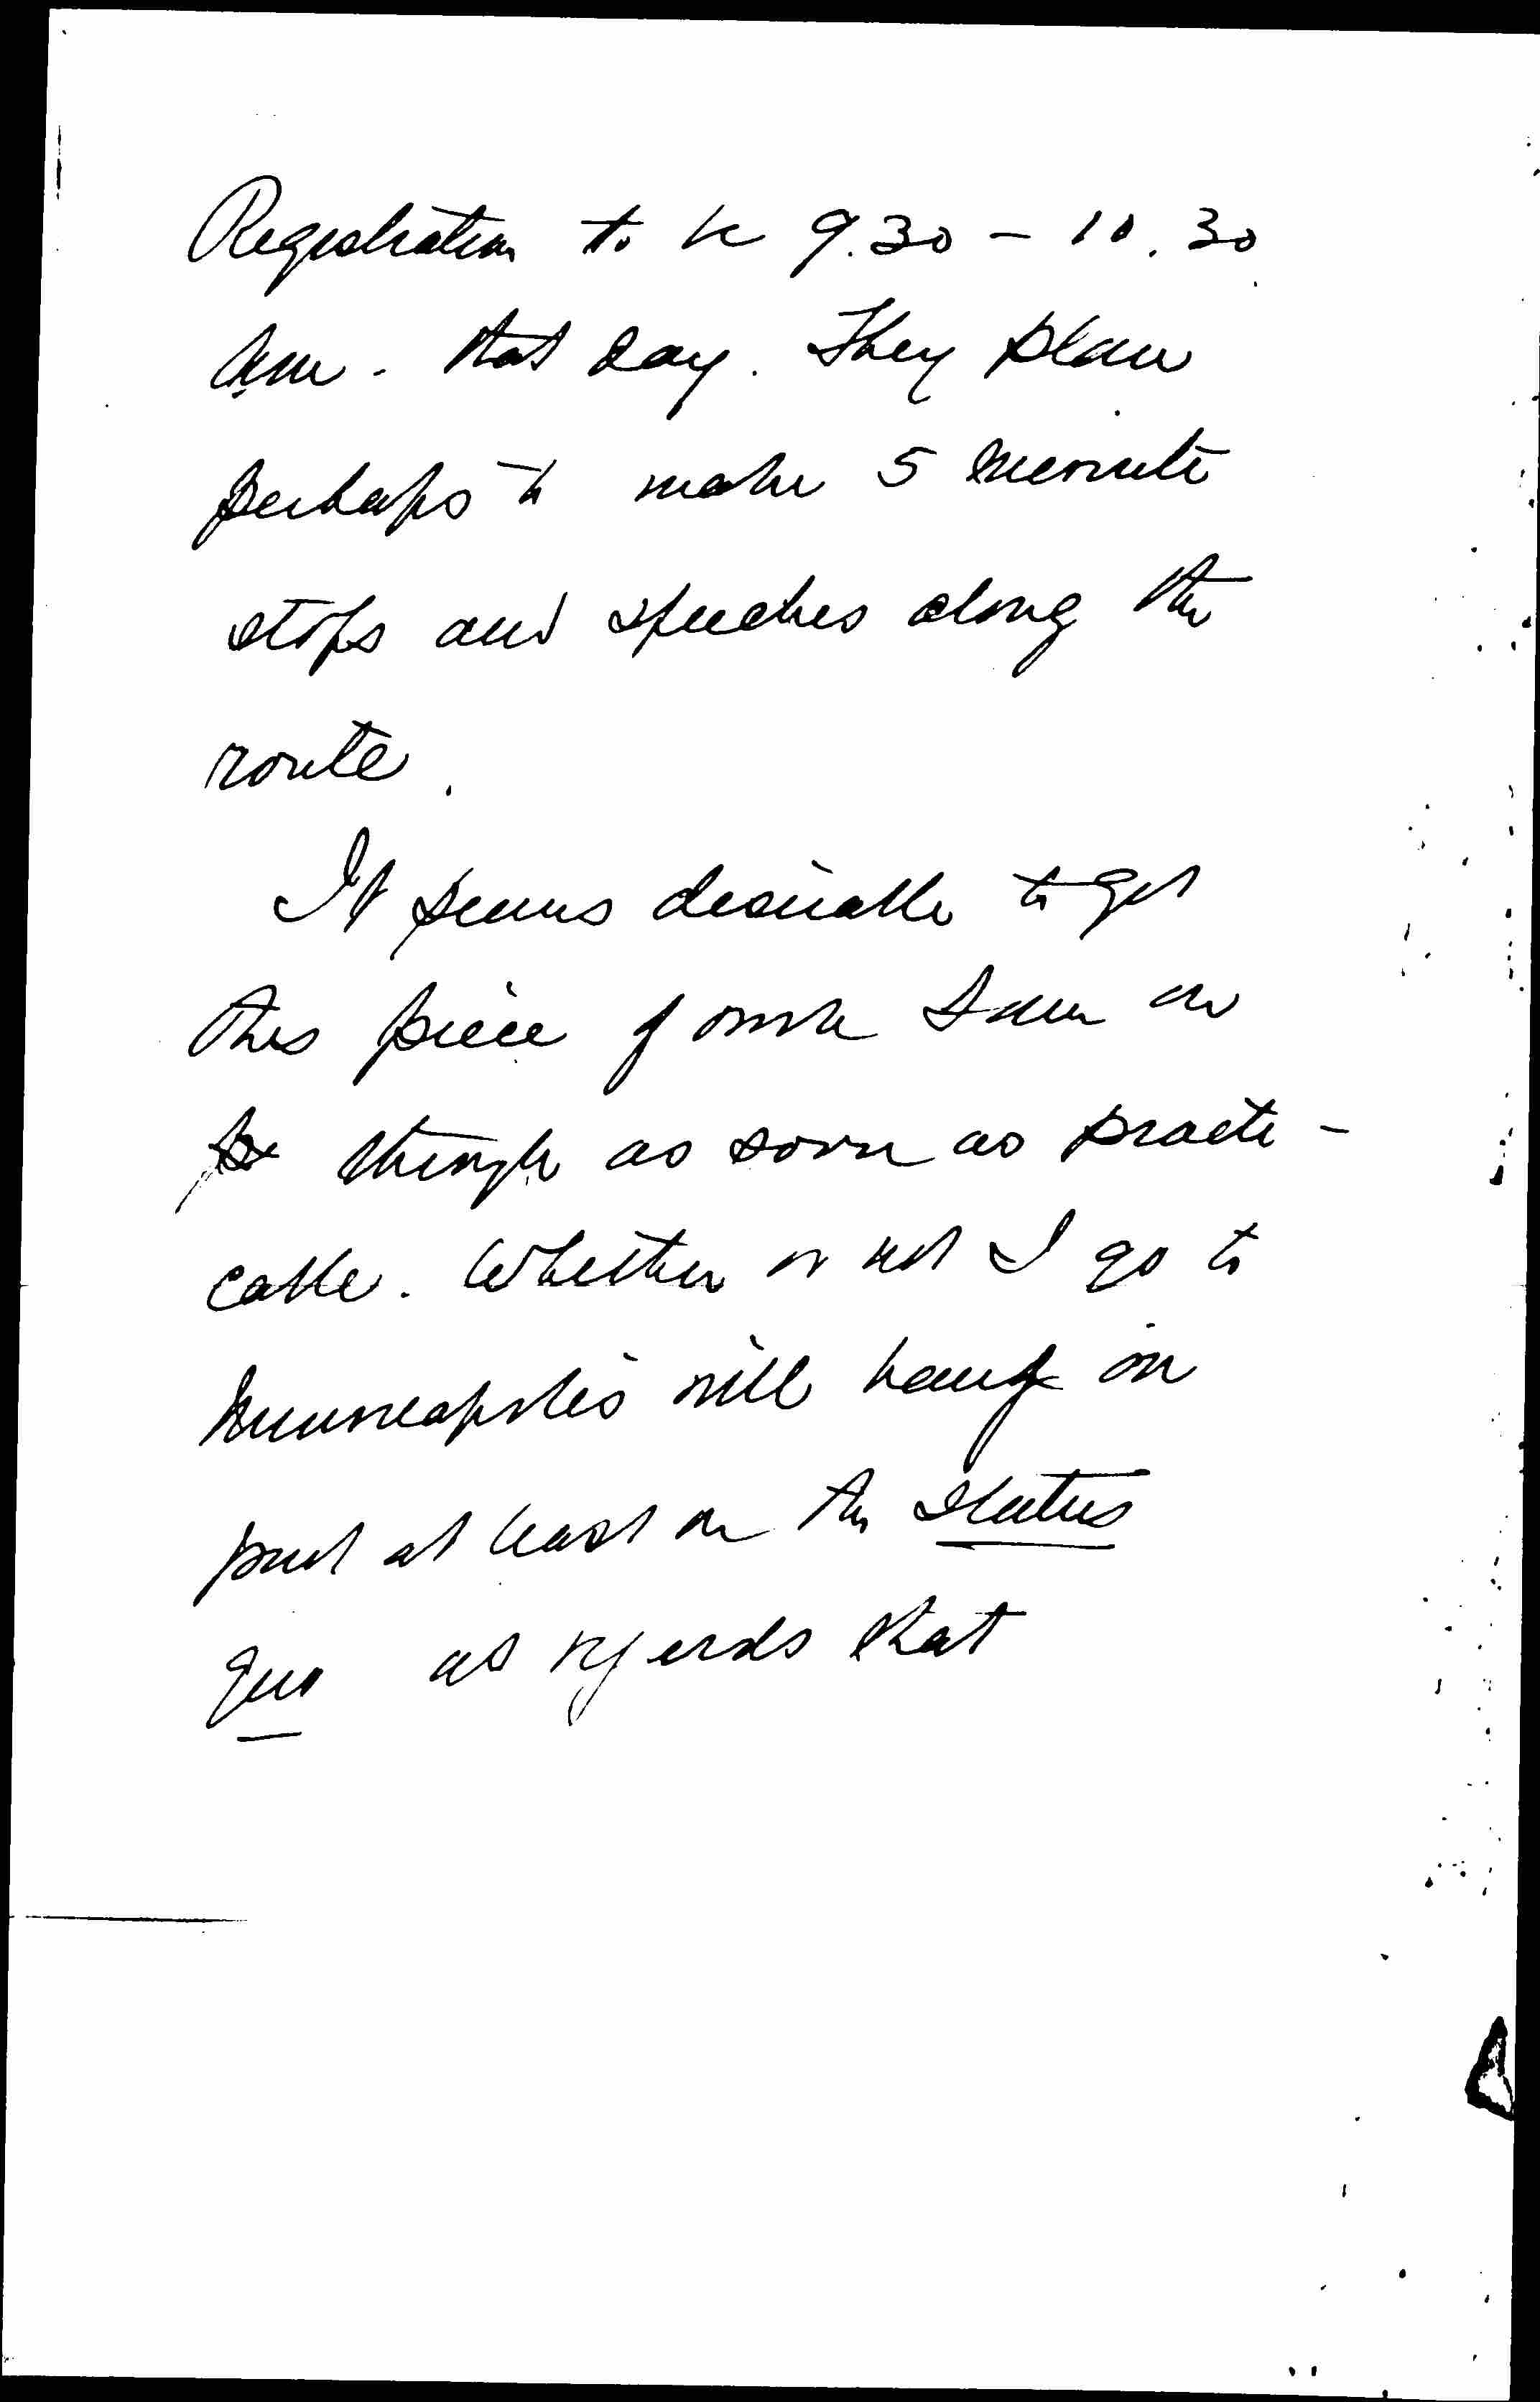 Registration to be 9.30 - 10.30
a.m. that day. They plan
perhaps to make 5 minute
stops and speeches along the
route.
It seems desirable to get
this piece of work down on
as soon as practi-
cable. Whether or not I go to
Minneapolis will hang in
part at least on the status
quo as regards that